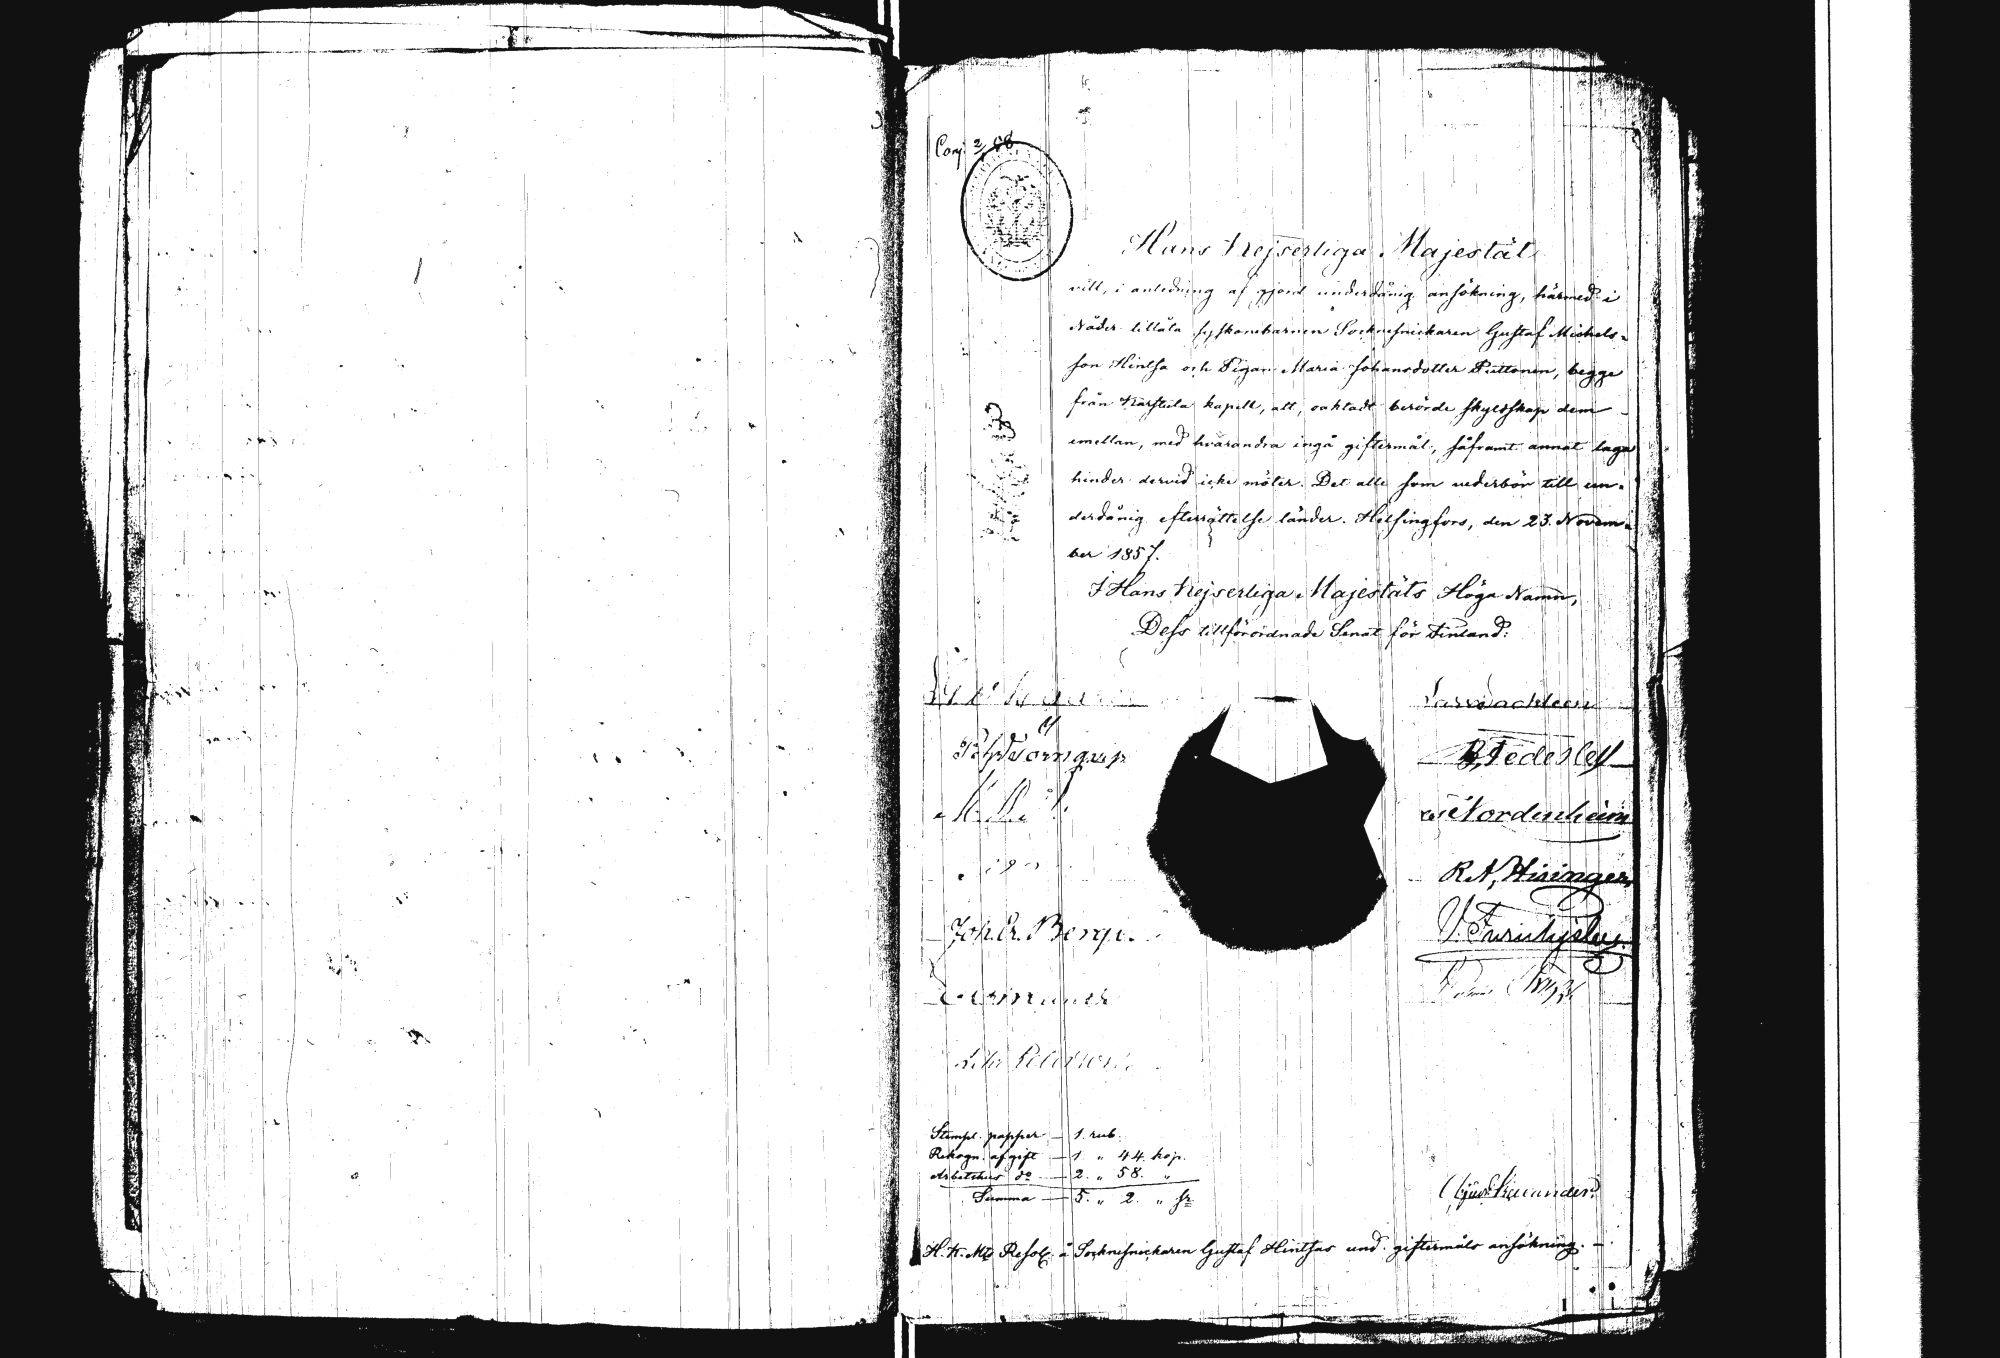 Hans Kejserliga Majestät
vill, i anledning af gjord underdånig ansökning, härmed i
Nåder tillåta syskonebarnen Socknesnickaren Gustaf Michels-
son Hintsa och Pigan Maria Johansdotter Puttonen, begge
från Karstula kapell, att, oaktadt berörde skyldskap dem
emellan, med hvarandra ingå giftermål, såframt annat laga
hinder dervid icke möter. Det alle som vederbör till un-
derdånig efterrättelse länder. Helsingfors, den 23. Novem-
ber 1857.
I Hans Kejserliga Majestäts Höga Namn,
Dess tillförordnade Senat för Finland:
B. Federley
Nordenheim
R. A. Hisinger
Joh. Er. Bergb.
V. Furuhjelm
Stempl. papper — 1. rub.
Rekogn. afgift — 1 " 44. kop.
Arbetshus do — 2. " 58. "
Summa — 5. " 2. " sr
H. K. Mts Resol. å Socknesnickaren Gustaf Hintsas und. giftermåls ansökning. —